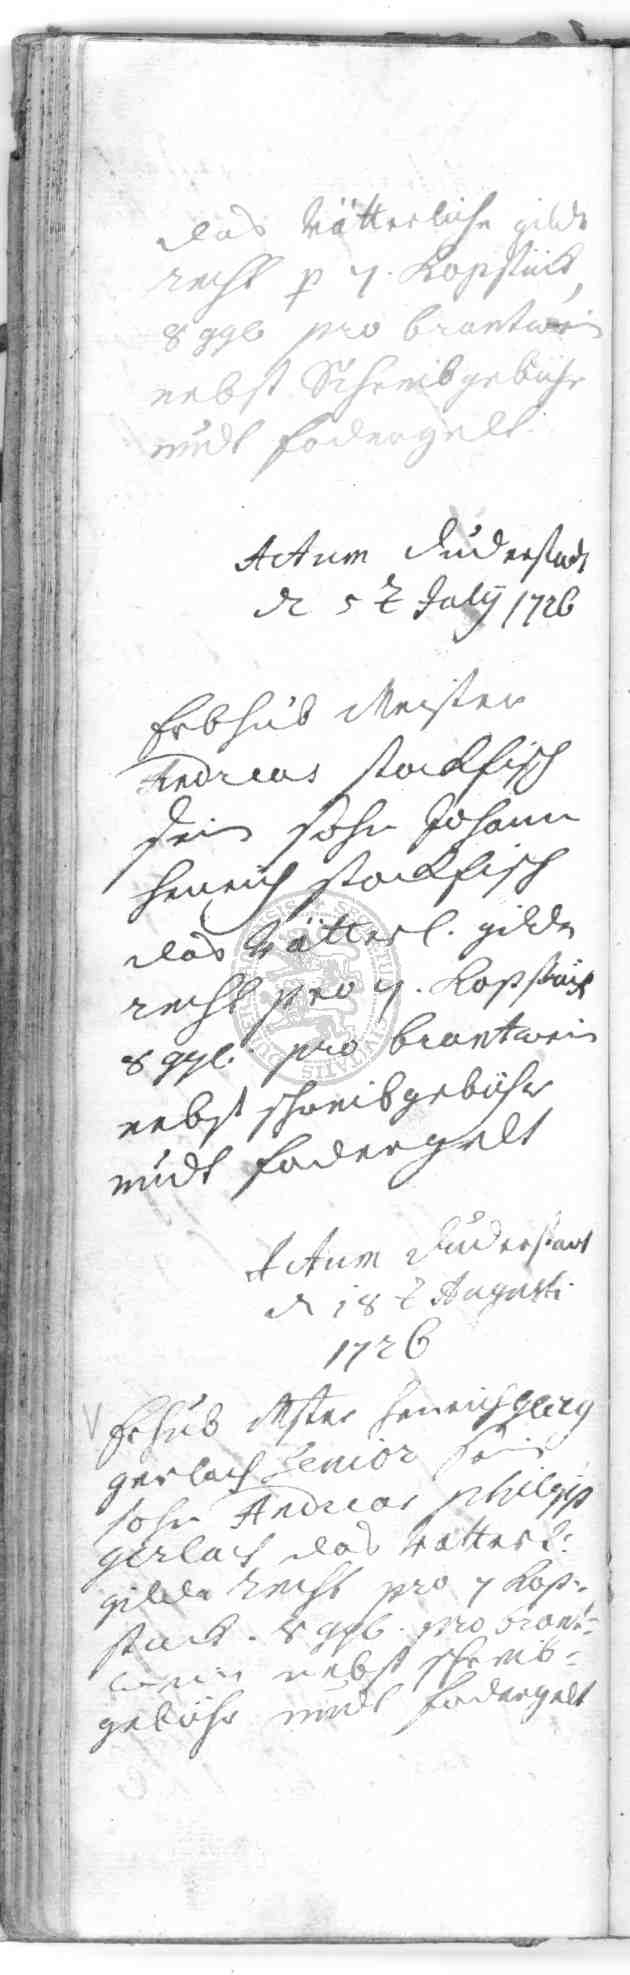 das Vätterliche gilde
recht p 7. Kopstück,
8 ggl pro brantwein
nebst Schreibgebühr
undt fodergelt.
Actum Duderstadt
d 5 t July 1726
Erhub Meister
Andreas stockfisch
sein sohn Johann
Henrich stockfisch
das Vätterl. gilde
recht pro 7. Kopstück
8 ggl. pro brantwein
nebst schreibgebühr
undt fodergelt
Actum Duderstadt
d 18 t Augusti
1726
Erhub Mster Henrich Georg
gerlach Senior sein
sohn Andreas philipp
gerlach das Vätterl:
gilde recht pro 7 Kop-
stück. 8 ggl. pro brant-
wein nebst schreib-
gebühr undt fodergelt
SECRETVM CIVITATIS